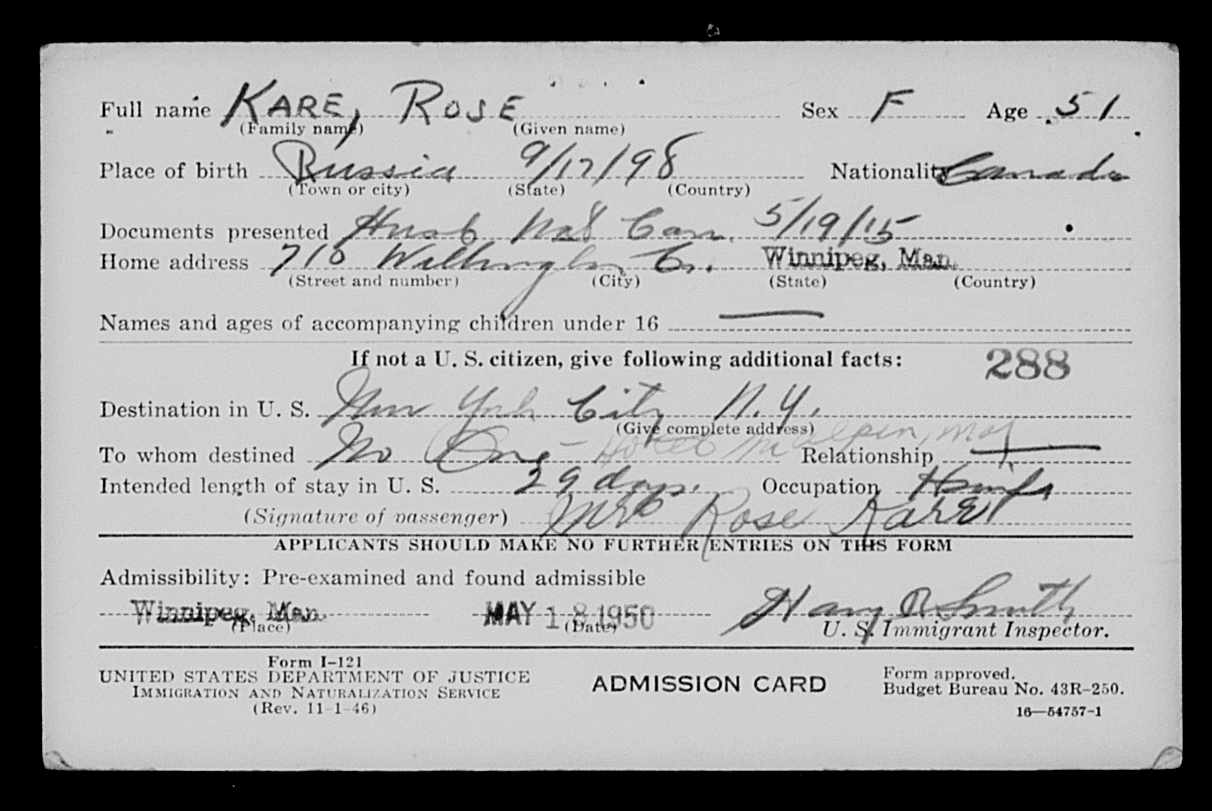 Full name KARE, ROSE Sex F Age 51
(Family name) (Given name)
Place of birth Russia 9/17/98 Nationality Canada
(Town or city) (State) (Country)
Documents presented Husb Nat Can. 5/19/15
Home address 710 Wellington Cr. Winnipeg, Man.
(Street and number) (City) (State) (Country)
Names and ages of accompanying children under 16 —
If not a U. S. citizen, give following additional facts: 288
Destination in U. S. New York City N.Y.
(Give complete address)
To whom destined No One – Hotel McAlpin, Relationship —
Intended length of stay in U. S. 29 days. Occupation Hswife
(Signature of passenger) Mrs Rose Kare
APPLICANTS SHOULD MAKE NO FURTHER ENTRIES ON THIS FORM
Admissibility: Pre-examined and found admissible
Winnipeg, Man. MAY 18 1950 Harry R Smith
(Place) (Date) U. S. Immigrant Inspector.
Form I-121
UNITED STATES DEPARTMENT OF JUSTICE
IMMIGRATION AND NATURALIZATION SERVICE
(Rev. 11-1-46)
ADMISSION CARD
Form approved.
Budget Bureau No. 43R-250.
16—54757-1